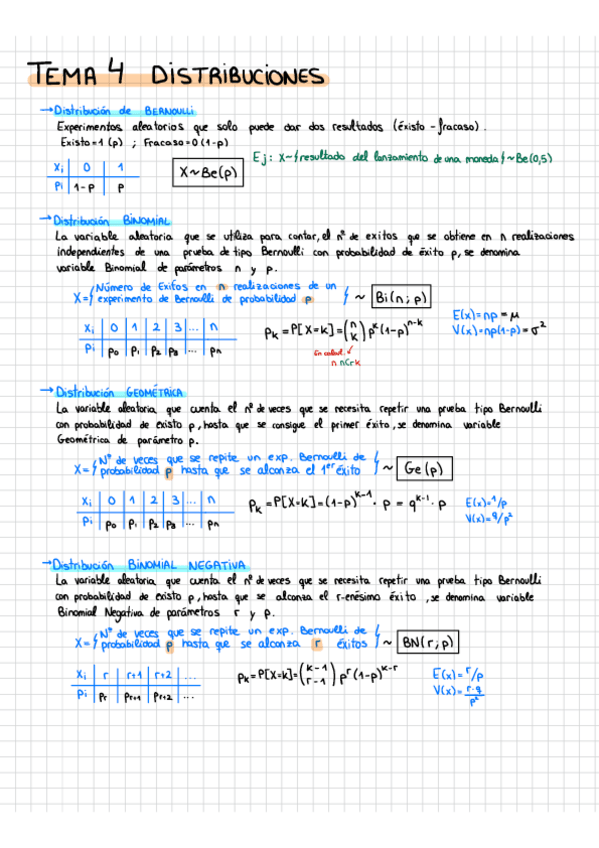 TEMA 4 DISTRIBUCIONES
→Distribución de BERNOULLI
Experimentos aleatorios que solo puede dar dos resultados (éxisto - fracaso).
Existo=1 (p) ; Fracaso=0 (1-p)
Ej: X~{resultado del lanzamiento de una moneda}~Be(0,5)
Xi | 0 | 1
Pi | 1-p | p
X~Be(p)
→Distribución BINOMIAL
La variable aleatoria que se utiliza para contar, el nº de exitos que se obtiene en n realizaciones
independientes de una prueba de tipo Bernoulli con probabilidad de éxito p, se denomina
variable Binomial de parámetros n y p.
X={Número de Exitos en n realizaciones de un
experimento de Bernoulli de probabilidad p} ~ Bi(n;p)
E(x)=np=μ
V(x)=np(1-p)=σ²
Xi | 0 | 1 | 2 | 3 |...| n
Pi | p0 | p1 | p2 | p3 |...| pn
Pk=P[X=k]=(n k) p^k (1-p)^n-k
En calcul.
n nCr k
→Distribución GEOMÉTRICA
La variable aleatoria que cuenta el nº de veces que se necesita repetir una prueba tipo Bernoulli
con probabilidad de existo p, hasta que se consigue el primer éxito, se denomina variable
Geométrica de parámetro p.
X={Nº de veces que se repite un exp. Bernoulli de
probabilidad p hasta que se alconza el 1er éxito} ~ Ge(p)
Xi | 0 | 1 | 2 | 3 |...| n
Pi | p0 | p1 | p2 | p3 |...| pn
Pk=P[X=k]=(1-p)^k-1 · p = q^k-1 · p
E(x)=1/p
V(x)=q/p²
→Distribución BINOMIAL NEGATIVA
La variable aleatoria que cuenta el nº de veces que se necesita repetir una prueba tipo Bernoulli
con probabilidad de existo p, hasta que se alconza el r-enésimo éxito, se denomina variable
Binomial Negativa de parámetros r y p.
X={Nº de veces que se repite un exp. Bernoulli de
probabilidad p hasta que se alconza r éxitos} ~ BN(r;p)
Xi | r | r+1 | r+2 | ...
Pi | pr | pr+1 | pr+2 | ...
Pk=P[X=k]=(k-1 r-1) p^r (1-p)^k-r
E(x)=r/p
V(x)=r·q/p²